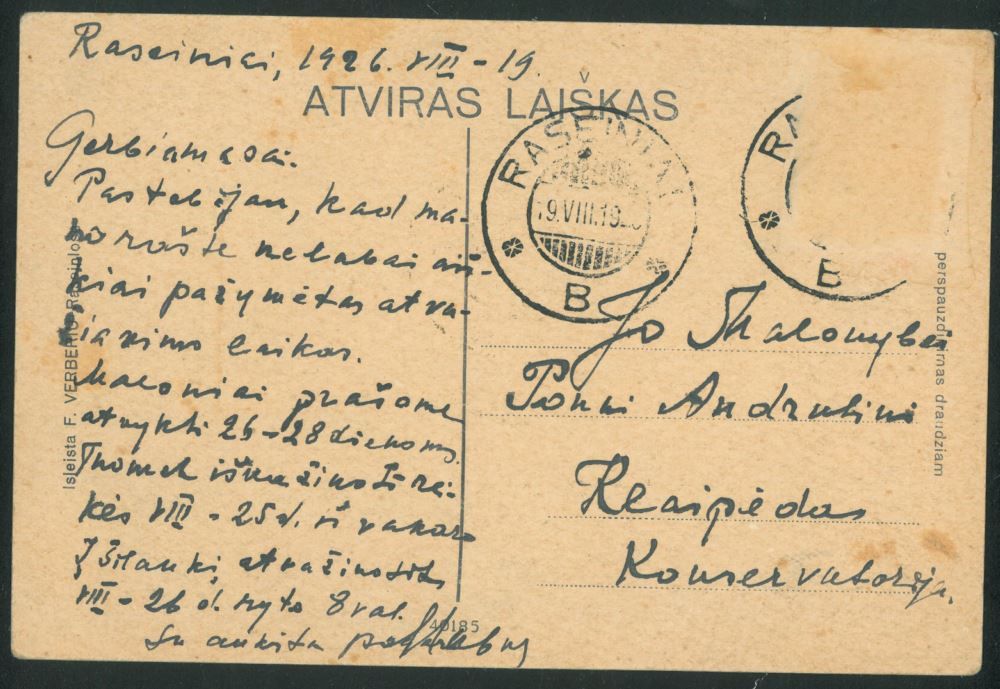 Raseiniai, 1926. VIII-19.
ATVIRAS LAIŠKAS
Gerbiamasai.
Pastebėjau, kad ma-
no rašte nelabai aiš-
kiai pažymėtas atva-
žiavimo laikas.
Maloniai prašome
atvykti 26-28 dienoms.
iškvažinoti rei-
kės VIII-25 d. iš vakaro
Į Šilaukį atvažinosite
VIII-26 d. ryto 8 val.
Su aukšta pagarba
40185
RASEINIAI
19.VIII.19
B
RA
B
Jo Malonybei
Ponui Andruliui
Klaipėdos
Konservatorija.
Isleista F. VERBERIO Raseiniose
perspauzdinamas draudziam